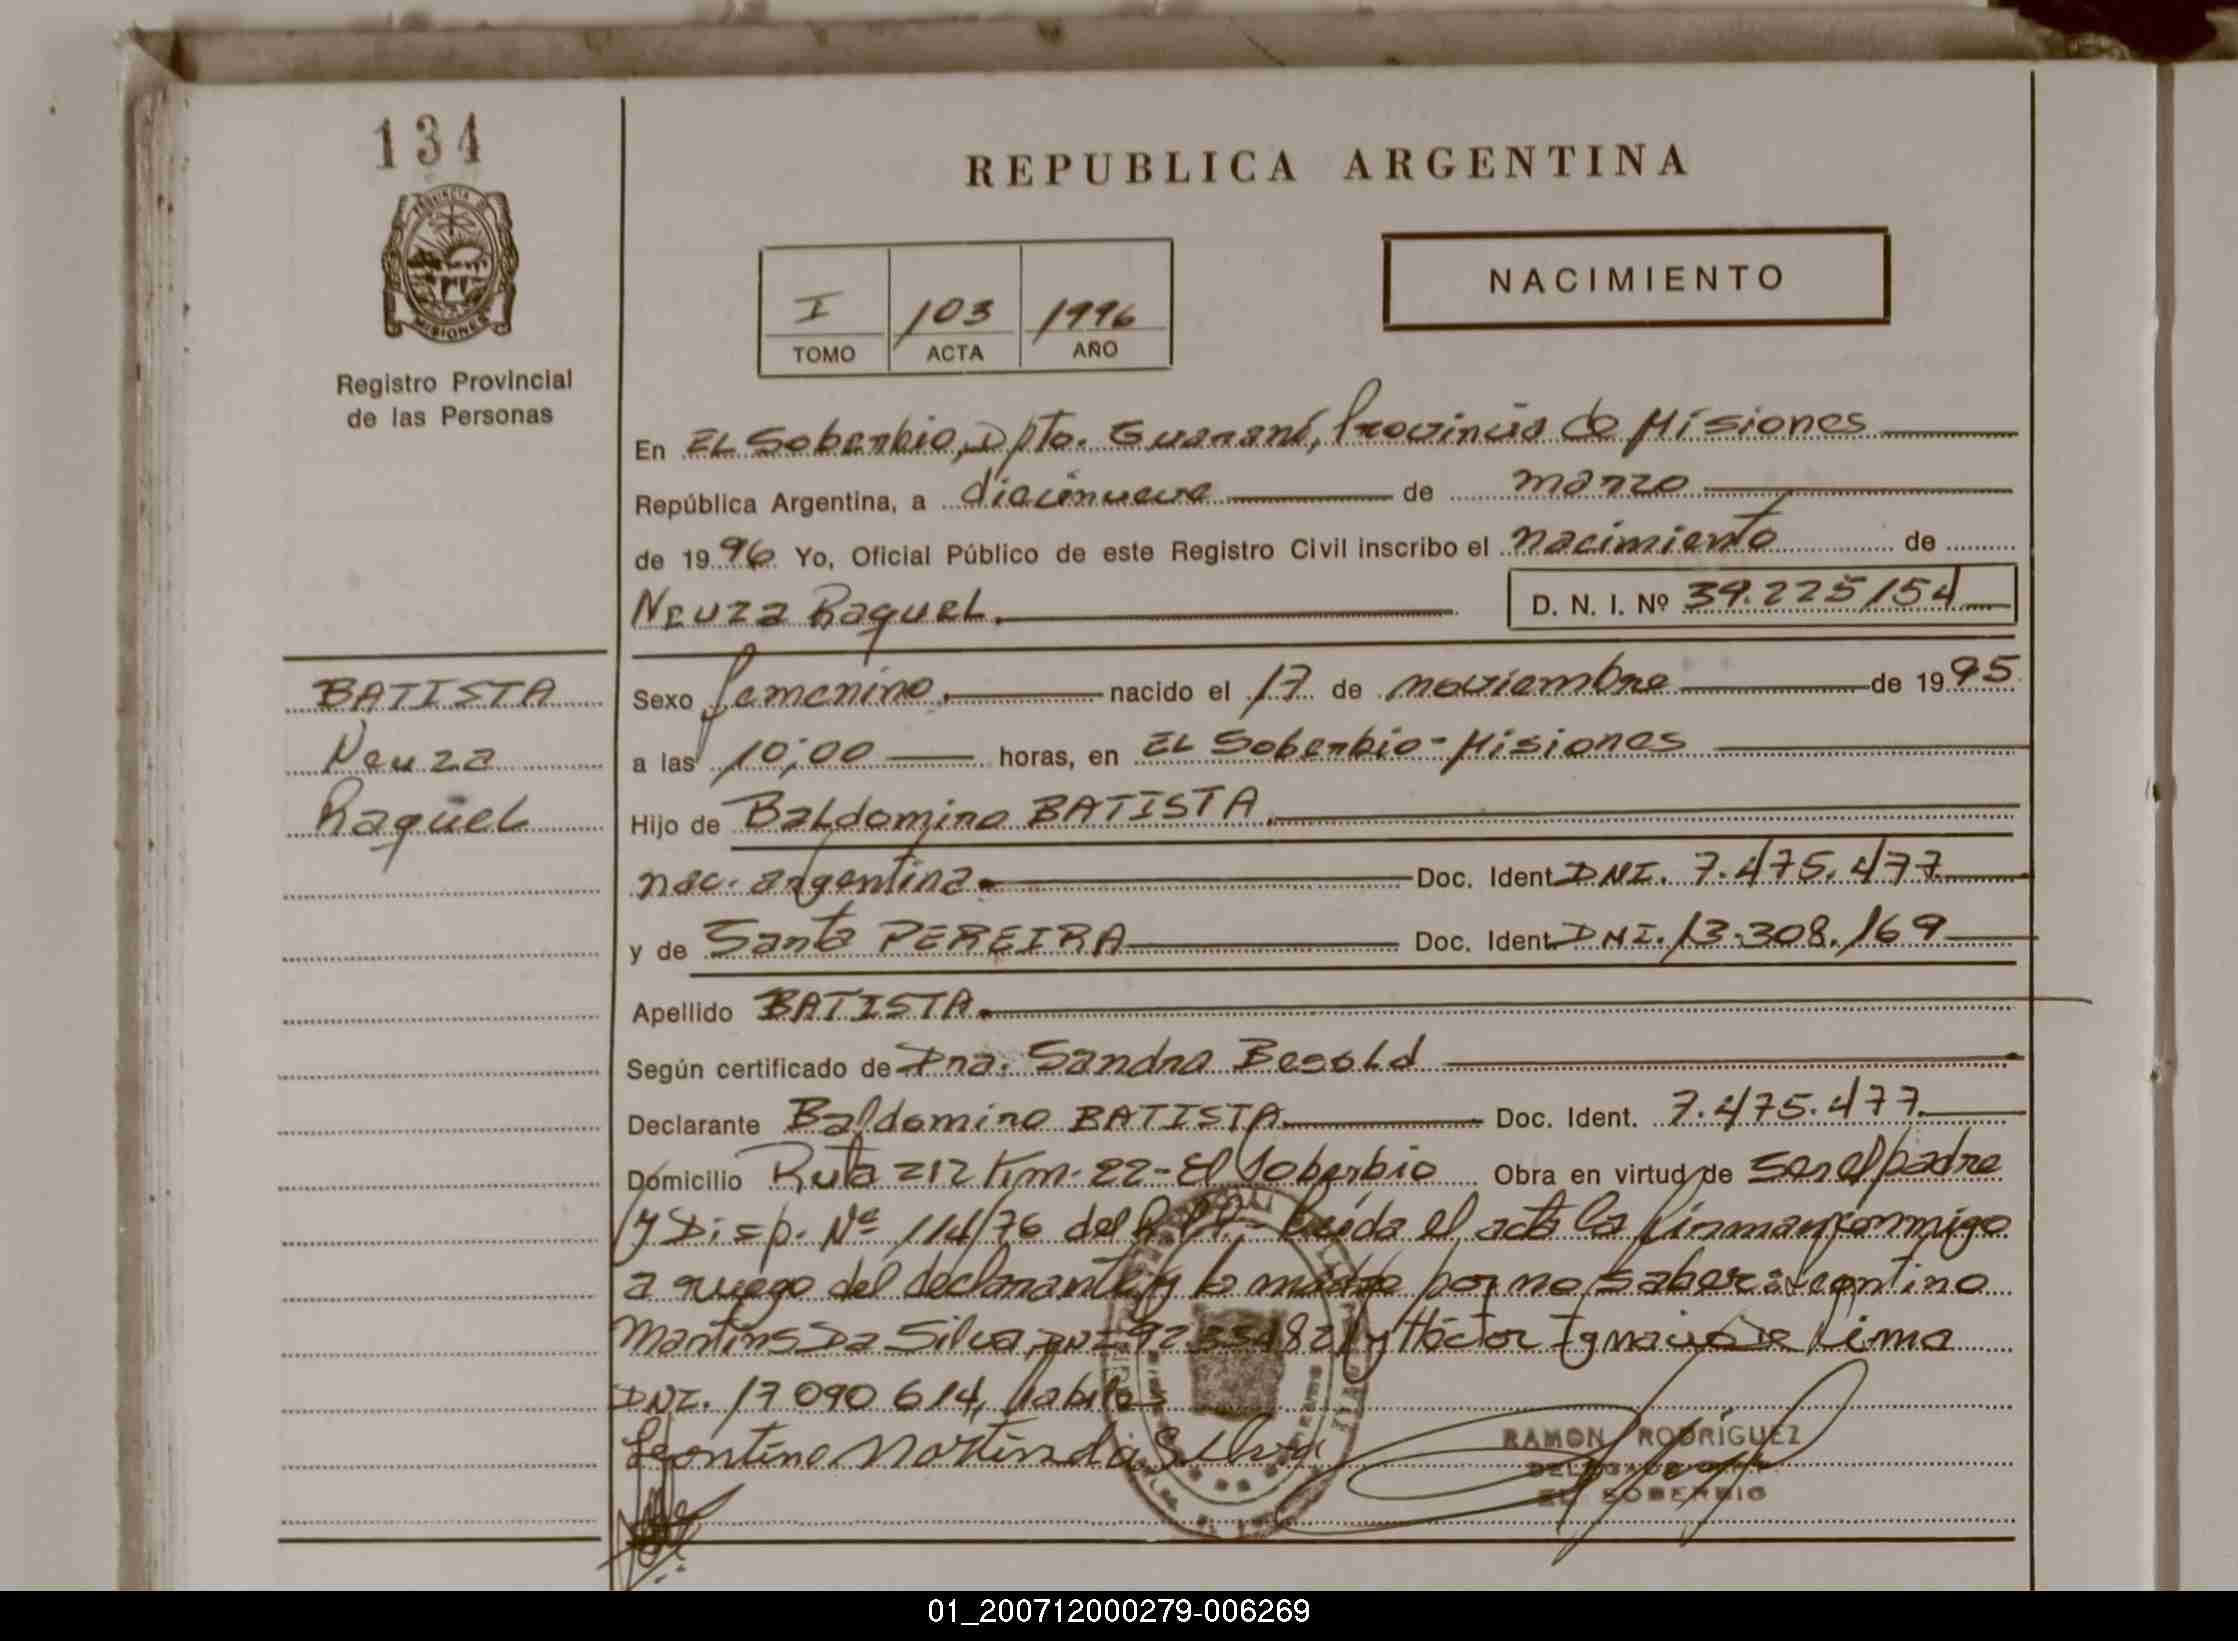 134
PROVINCIA DE
MISIONES
Registro Provincial
de las Personas
REPUBLICA ARGENTINA
NACIMIENTO
I 103 1996
TOMO ACTA AÑO
En EL Soberbio, Dpto. Guaraní, Provincia de Misiones
República Argentina, a diecinueve de marzo
de 1996 Yo, Oficial Público de este Registro Civil inscribo el nacimiento de
Neuza Raquel. D. N. I. Nº 39.225154
BATISTA
Neuza
Raquel
Sexo femenino. nacido el 17 de noviembre de 1995
a las 10;00 horas, en EL Soberbio-Misiones
Hijo de Baldomiro BATISTA.
nac. argentina. Doc. Ident. DNI. 7.475.477
y de Santa PEREIRA Doc. Ident. DNI. 13.308.169
Apellido BATISTA.
Según certificado de Dra. Sandra Besold
Declarante Baldomiro BATISTA Doc. Ident. 7.475.477
Domicilio Ruta 212 Km. 22-El Soberbio Obra en virtud de ser el padre
y Disp. Nº 114/76 del R.P.P.- Leída el acta la firman conmigo
a ruego del declarante y la madre por no saber: Leontino
Martins Da Silva, y Héctor Ignacio De Lima
DNI. 17 090 614,
Leontino Martins da Silva
RAMON RODRÍGUEZ
EL SOBERBIO
01_200712000279-006269